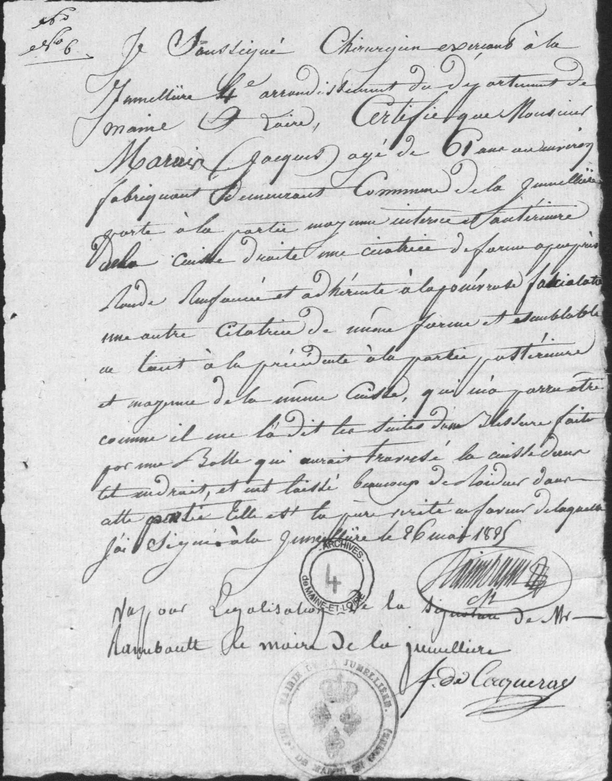 Je Soussigné Chirurgien exercant à la
Jumellière 4e arrondissement du département de
maine et Loire, Certifie que Monsieur
(Jacques) agé de 61 ans environ
fabriquant Demeurant Commune de la Jumellière
porte à la partie moyenne interne et antérieure
de la cuisse droite une cicatrice de forme apeuprès
Ronde Renfoncée et adhérente à la
une autre Citatrice de même forme et semblable
en tout à la précédente à la partie postérieure
et moyenne de la même Cuisse, qui m'a parru être
comme il me l'a dit les suites d'une Blessure faite
par une Balle qui aurait traversé la cuisse dans
cet endroit, et ont laissé beaucoup de Roideur dans
cette partie Elle est la pure vérité en faveur de laquelle
j'ai Signé à la Jumellière le 26 mai 1825
ARCHIVES
de MAINE-ET-LOIRE
4
Vu pour Legalisation de la signature de Mr
Raimbault le maire de la jumellière
f. de Caqueray
MAIRIE DE LA JUMELLIÈRE